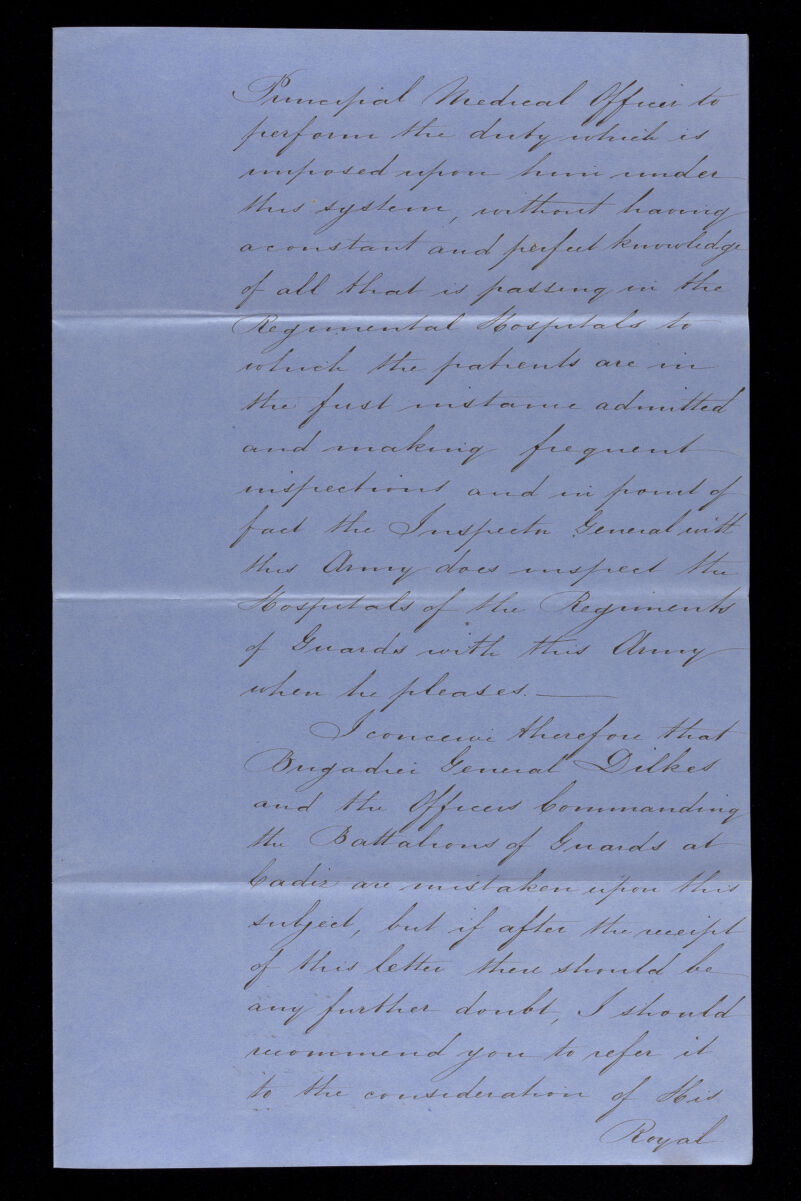 Principal Medical Officer to
perform the duty which is
imposed upon him under
this system, without having
a constant and perfect knowledge
of all that is passing in the
Regimental Hospitals to
which the patients are in
the first instance admitted
and making frequent
inspections and in point of
fact the Inspector General with
this Army does inspect the
Hospitals of the Regiments
of Guards with this Army
when he pleases. —
I conceive therefore that
Brigadier General Dilkes
and the Officers Commanding
the Battalions of Guards at
Cadiz are mistaken upon this
subject, but if after the receipt
of this letter there should be
any further doubt, I should
recommend you to refer it
to the consideration of His
Royal